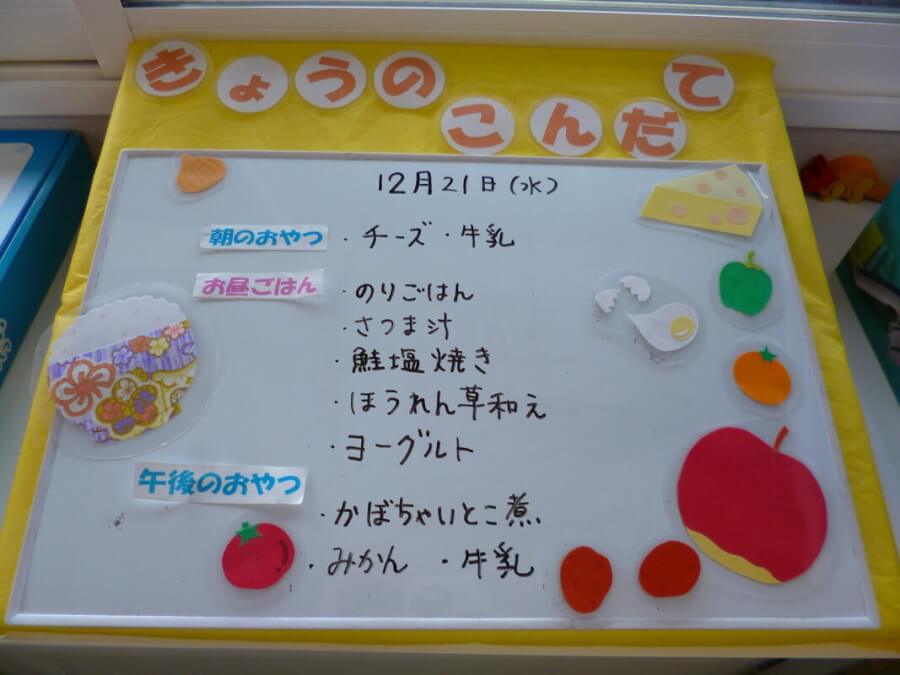 きょうのこんだて
12月21日(水)
朝のおやつ ・チーズ ・牛乳
お昼ごはん ・のりごはん
・さつま汁
・鮭塩焼き
・ほうれん草和え
・ヨーグルト
午後のおやつ
・かぼちゃいとこ煮
・みかん ・牛乳